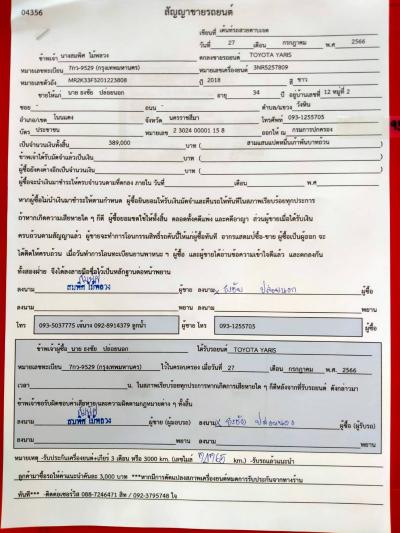 04356
สัญญาขายรถยนต์
เขียนที่ เต็นท์รถสวยตาบะเจต
วันที่ 27 เดือน กรกฎาคม พ.ศ. 2566
ข้าพเจ้า นางสมพิศ ไม้พลวง ตกลงขายรถยนต์ TOYOTA YARIS
หมายเลขทะเบียน 7กว-9529 (กรุงเทพมหานคร) หมายเลขเครื่องยนต์ 3NR5257809
หมายเลขตัวถัง MR2K33F3201223808 ปี 2018 สี ขาว
ขายให้แก่ นาย ธงชัย ปล้อยนอก อายุ 34 ปี อยู่บ้านเลขที่ 12 หมู่ที่ 2
ซอย - ถนน - ตำบล/แขวง วังหิน
อำเภอ/เขต โนนแดง จังหวัด นครราชสีมา โทรศัพท์ 093-1255705
บัตร ประชาชน หมายเลข 2 3024 00001 15 8 ออกให้ ณ กรมการปกครอง
เป็นจำนวนเงินทั้งสิ้น 389,000 บาท ( สามแสนแปดหมื่นเก้าพันบาทถ้วน )
ข้าพเจ้าได้รับมัดจำแล้วเป็นเงิน บาท ( )
ผู้ซื้อยังคงค้างอีกเป็นจำนวนเงิน บาท ( )
ผู้ซื้อจะนำเงินมาชำระให้ครบจำนวนตามที่ตกลง ภายใน วันที่ เดือน พ.ศ.
หากผู้ซื้อไม่นำเงินมาชำระให้ตามกำหนด ผู้ซื้อยินยอมให้ริบเงินมัดจำและคืนรถให้ทันทีในสภาพเรียบร้อยทุกประการ
ถ้าหากเกิดความเสียหายใด ๆ ก็ดี ผู้ซื้อยอมชดใช้ให้ทั้งสิ้น ตลอดทั้งคดีแพ่ง และคดีอาญา ส่วนผู้ขายเมื่อได้รับเงิน
ครบถ้วนตามสัญญาแล้ว ผู้ขายจะทำการโอนกรรมสิทธิ์รถคันนี้ให้แก่ผู้ซื้อทันที อากรแสตมป์ซื้อ-ขาย ผู้ซื้อเป็นผู้ออก จะ
ได้คิดให้ครบถ้วน เมื่อวันที่ทำการโอนทะเบียนยานพาหนะ ฯ ผู้ซื้อ และผู้ขายได้อ่านข้อความเข้าใจดีแล้ว และตกลงกัน
ทั้งสองฝ่าย จึงได้ลงลายมือชื่อไว้เป็นหลักฐานต่อหน้าพยาน
สมพิศ
ลงนาม สมพิศ ไม้พลวง ผู้ขาย ลงนาม x ธงชัย ปล้อยนอก ผู้ซื้อ
ลงนาม พยาน ลงนาม พยาน
โทร 093-5037775 092-8914379 ลูกน้ำ ผู้ขาย โทร 093-1255705 ผู้ซื้อ
ข้าพเจ้าผู้ซื้อ นาย ธงชัย ปล้อยนอก ได้รับรถยนต์ TOYOTA YARIS
หมายเลขทะเบียน 7กว-9529 (กรุงเทพมหานคร) ไว้ในครอบครอง เมื่อวันที่ 27 เดือน กรกฎาคม พ.ศ. 2566
เวลา น. ในสภาพเรียบร้อยทุกประการหากเกิดการเสียหายใด ๆ ก็ดีหลังจากที่รับรถยนต์ ดังกล่าวมา
ข้าพเจ้าขอรับผิดชอบค่าเสียหายและความผิดตามกฎหมายต่าง ๆ ทั้งสิ้น
สมพิศ
ลงนาม สมพิศ ไม้พลวง ผู้ขาย (ผู้มอบรถ) ลงนาม x ธงชัย ปล้อยนอก ผู้ซื้อ (ผู้รับรถ)
ลงนาม พยาน ลงนาม พยาน
หมายเหตุ -รับประกันเครื่องยนต์+เกียร์ 3 เดือน หรือ 3000 km. (เลขไมล์ 71765 km.) -รับรถแล้วแนะนำ
ลูกค้ามาซื้อรถให้ค่าแนะนำคันละ 3,000 บาท ***หากมีการดัดแปลงสภาพเครื่องยนต์หมดการรับประกันจากทางร้าน
ทันที*** -ติดต่อเซอร์วิส 088-7246471 สิท / 092-3795748 ใจ